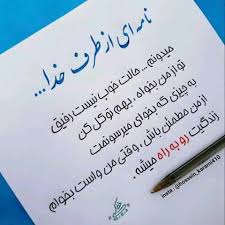 نامه ای از طرف خدا...
میدونم... حالت خوب نیست رفیق
تو از من بخواه، بهم توکل کن
به چیزی که بخوای میرسونمت
از من مطمئن باش، وقتی من واست بخوام
زندگیت رو به راه میشه.
insta : @hossein_karami410